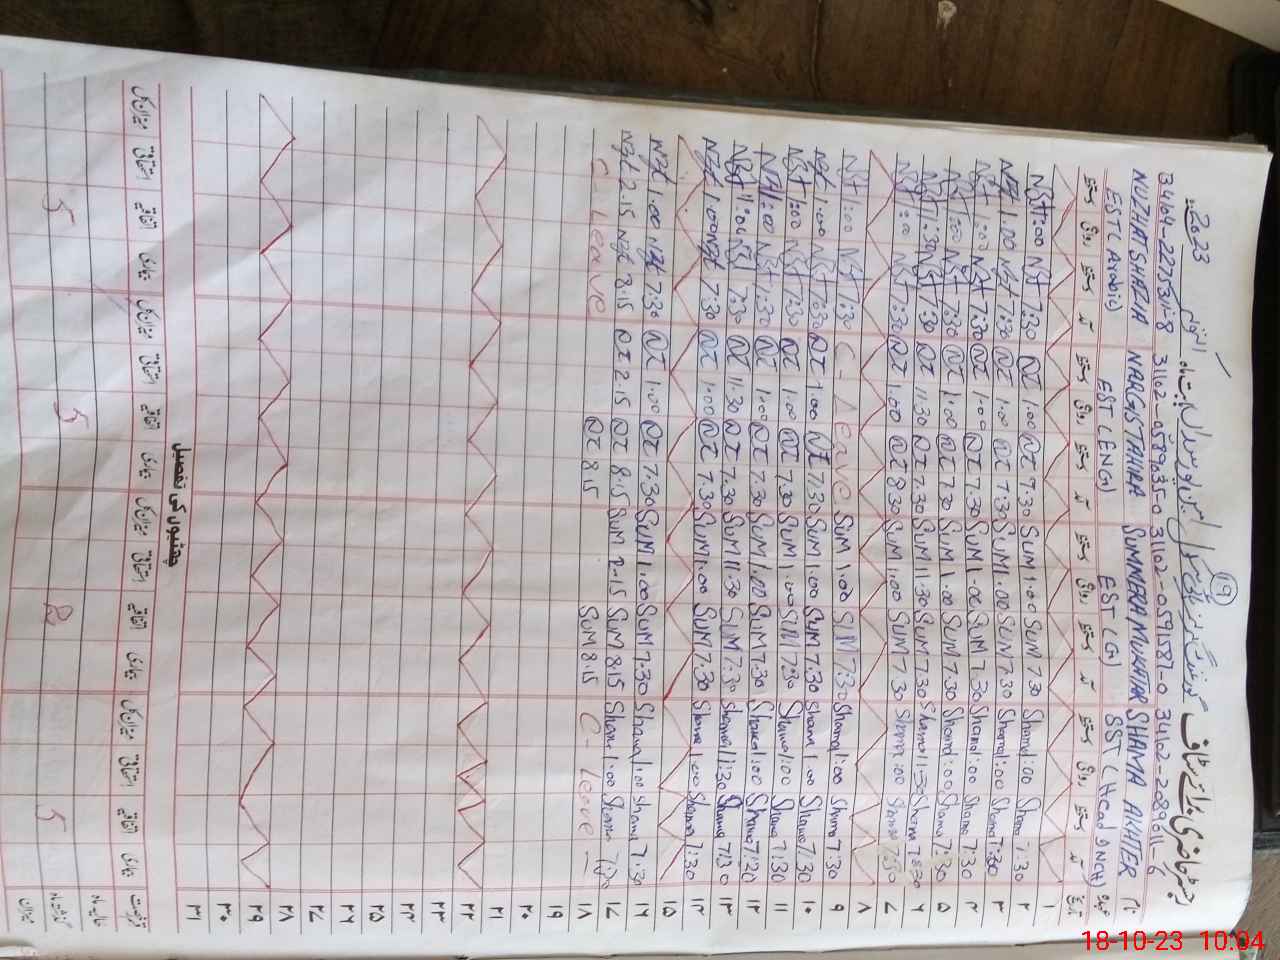 (19)
رجسٹر حاضری برائے سٹاف گورنمنٹ گرلز
2023
34104-2275311-8 31102-0589035-0 31102-0591587-0 34102-2899011-6
NUZHAT SHAZIA NARGIS TAHIRA SUMMERA MUKHTAR SHAMA AKHTER نام
EST (Arabic) EST (ENG) EST (G) SST (Head INCH) عہدہ
دستخط روانگی دستخط آمد دستخط روانگی دستخط آمد دستخط روانگی دستخط آمد دستخط روانگی دستخط آمد تاریخ
۱
NST 1:00 NST 7:30 NI 1:00 NI 7.30 SUM 1:00 SUM 7.30 Shama 1:00 Shama 7:30 ۲
NST 1.00 NST 7:30 NI 1:00 NI 7:30 SUM 1.00 SUM 7.30 Shama 1:00 Shama 7:30 ۳
NST 1:00 NST 7:30 NI 1:00 NI 7.30 SUM 1.00 SUM 7.30 Shama 1:00 Shama 7:30 ۴
NST 1:00 NST 7:30 NI 1:00 NI 7.30 SUM 1.00 SUM 7.30 Shama 1:00 Shama 7:30 ۵
NST 11:30 NST 7:30 NI 11:30 NI 7.30 SUM 11:30 SUM 7.30 Shama 11:30 Shama ۶
NST 1:00 NST 7:30 NI 1:00 NI 8:30 SUM 1:00 SUM 7.30 Shama 1:00 Shama 7:30 ۷
۸
NST 1:00 NST 7:30 C - Leave SUM 1:00 SUM 7:30 Shama 1:00 Shama 7:30 ۹
NST 1:00 NST 7:30 NI 1:00 NI 7.30 SUM 1.00 SUM 7.30 Shama 1:00 Shama 7:30 ۱۰
NST 1:00 NST 7:30 NI 1:00 NI 7.30 SUM 1.00 SUM 7:30 Shama 1:00 Shama 7:30 ۱۱
NST 1:00 NST 7:30 NI 1:00 NI 7.30 SUM 1.00 SUM 7.30 Shama 1:00 Shama 7:20 ۱۲
NST 11:00 NST 7:30 NI 11.30 NI 7.30 SUM 11:30 SUM 7:30 Shama 11:30 Shama 7:30 ۱۳
NST 1:00 NST 7:30 NI 1:00 NI 7.30 SUM 1.00 SUM 7.30 Shama 1:00 Shama 7:30 ۱۴
۱۵
NST 1.00 NST 7:30 NI 1:00 NI 7.30 SUM 1:00 SUM 7.30 Shama 1:00 Shama 7:30 ۱۶
NST 2.15 NST 8.15 NI 2.15 NI 8.15 SUM 2-15 SUM 8.15 Shama 1:00 Shama ۱۷
C - Leave NI 8.15 SUM 8.15 C - Leave ۱۸
۱۹
۲۰
۲۱
۲۲
۲۳
۲۴
۲۵
۲۶
۲۷
۲۸
۲۹
۳۰
۳۱
چھٹیوں کی تفصیل
میزان کل استحقاقی اتفاقیہ بیماری میزان کل استحقاقی اتفاقیہ بیماری میزان کل استحقاقی اتفاقیہ بیماری میزان کل استحقاقی اتفاقیہ بیماری قسم رخصت
حالیہ ماہ
5 5 2 5 گزشتہ ماہ
میزان
18-10-23 10:04